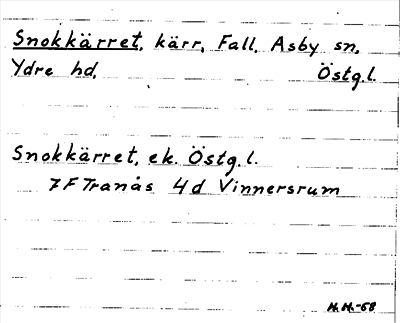 Snokkärret, kärr, Fall, Asby sn,
Ydre hd, Östg.l.
Snokkärret, ek. Östg.l.
7F Tranås 4d Vinnersrum
H.H.-68